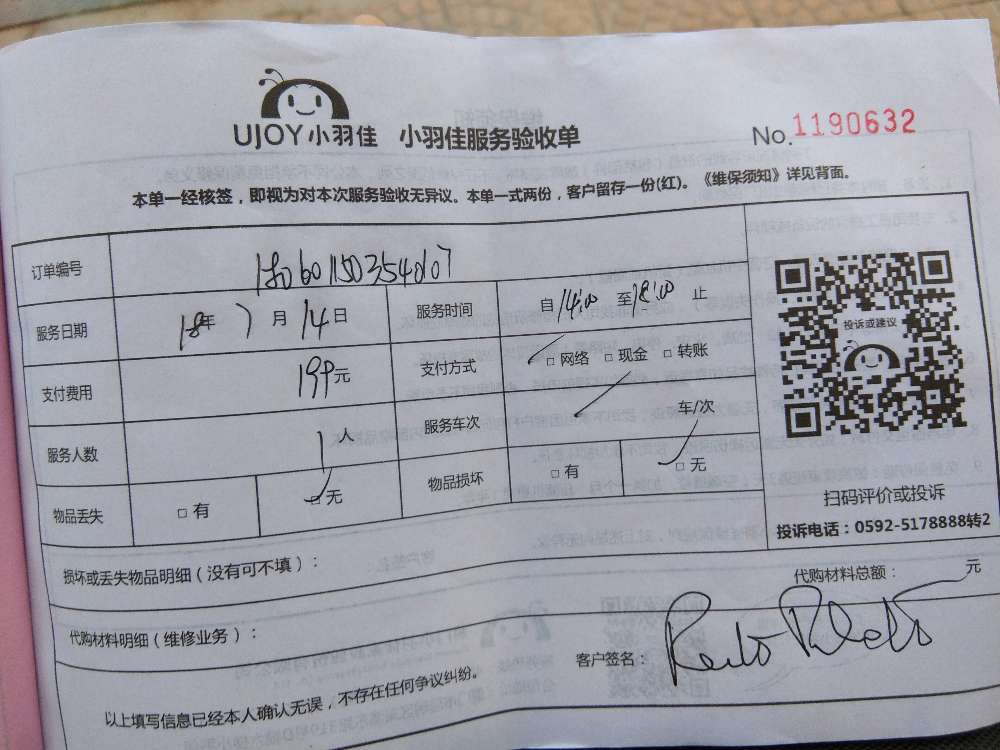 UJOY小羽佳 小羽佳服务验收单 No.1190632
本单一经核签，即视为对本次服务验收无异议。本单一式两份，客户留存一份(红)。《维保须知》详见背面。
订单编号
服务日期 18年 7月 14日 服务时间 自14:00 至18:00 止
支付费用 199元 支付方式 □网络 □现金 □转账
服务人数 1人 服务车次 车/次
物品丢失 □有 □无 物品损坏 □有 □无
投诉或建议
扫码评价或投诉
投诉电话：0592-5178888转2
损坏或丢失物品明细（没有可不填）：
代购材料总额： 元
代购材料明细（维修业务）：
客户签名：
以上填写信息已经本人确认无误，不存在任何争议纠纷。